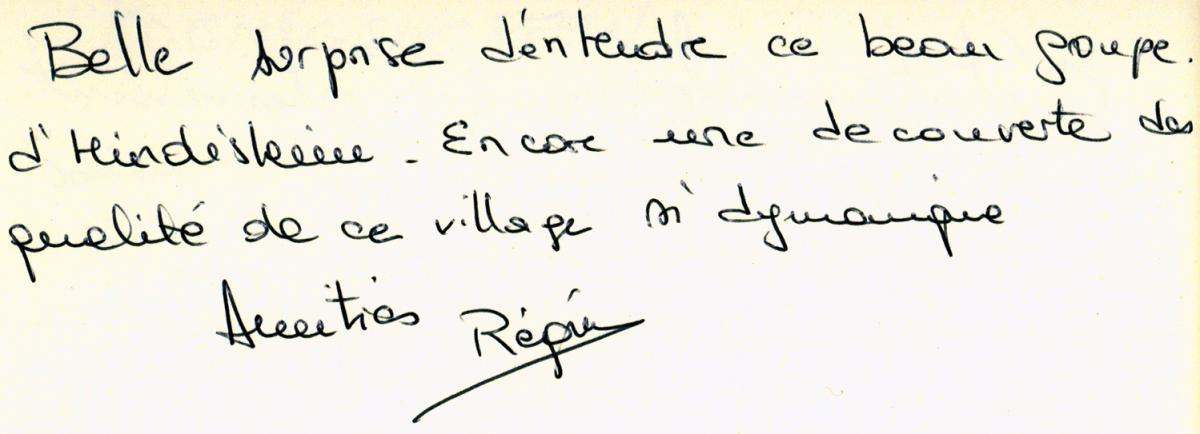 Belle surprise d'entendre ce beau goupe.
d'Hindisheim. Encore une decouverte des
qualité de ce village si dynamique
Amitiés Régin